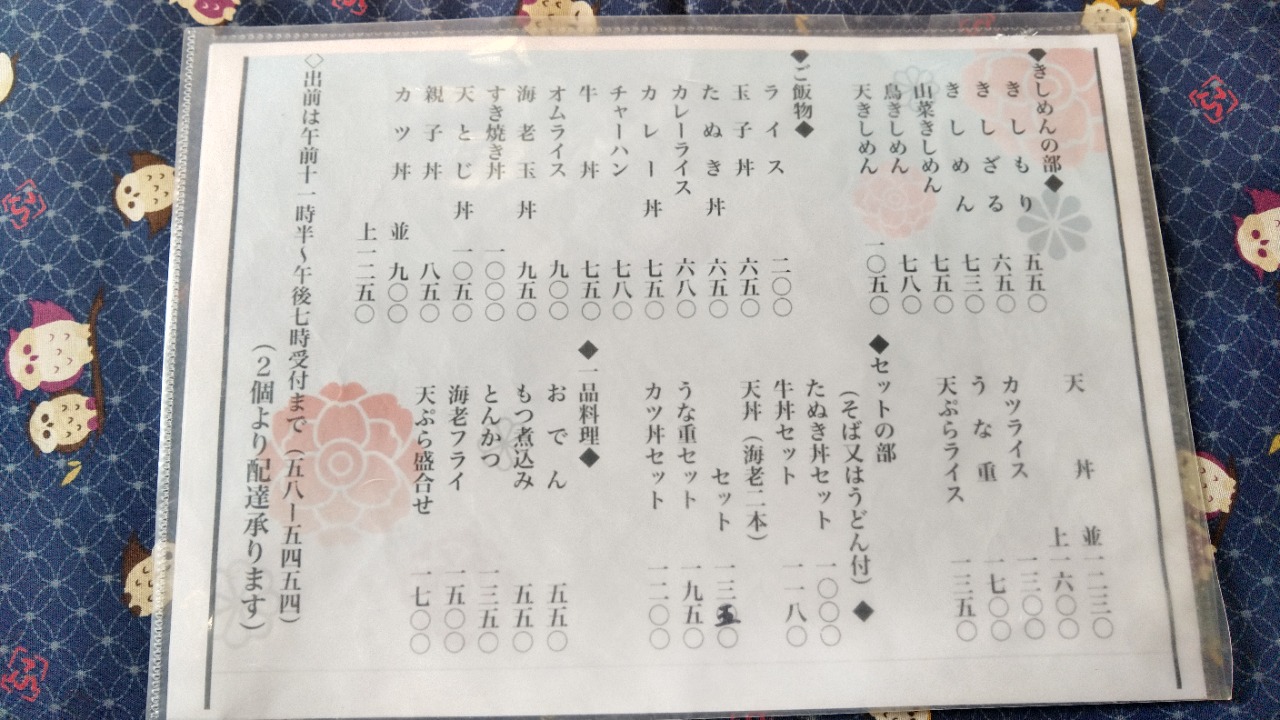 ◆きしめんの部◆
きしもり 五五〇
きしざる 六五〇
きしめん 七三〇
山菜きしめん 七五〇
鳥きしめん 七八〇
天きしめん 一〇五〇
◆ご飯物◆
ライス 二〇〇
玉子丼 六五〇
たぬき丼 六五〇
カレーライス 六八〇
カレー丼 七五〇
チャーハン 七八〇
牛丼 七五〇
オムライス 九〇〇
海老玉丼 九五〇
すき焼き丼 一〇〇〇
天とじ丼 一〇五〇
親子丼 八五〇
カツ丼 並 九〇〇
上一二五〇
天丼 並一二三〇
上一六〇〇
カツライス 一三〇〇
うな重 一七〇〇
天ぷらライス 一三五〇
◆セットの部
(そば又はうどん付)◆
たぬき丼セット 一〇〇〇
牛丼セット 一一八〇
天丼(海老二本)
セット 一三五〇
うな重セット 一九五〇
カツ丼セット 一二〇〇
◆一品料理◆
おでん 五五〇
もつ煮込み 五五〇
とんかつ 一三五〇
海老フライ 一五〇〇
天ぷら盛合せ 一七〇〇
◇出前は午前十一時半~午後七時受付まで(五八ー五四五四)
(2個より配達承ります)